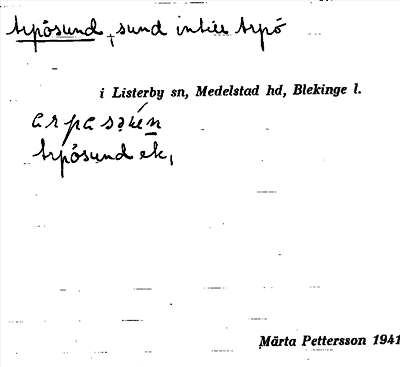 Arpösund, sund intill Arpö
i Listerby sn, Medelstad hd, Blekinge l.
Arpösund ek,
Märta Pettersson 1941